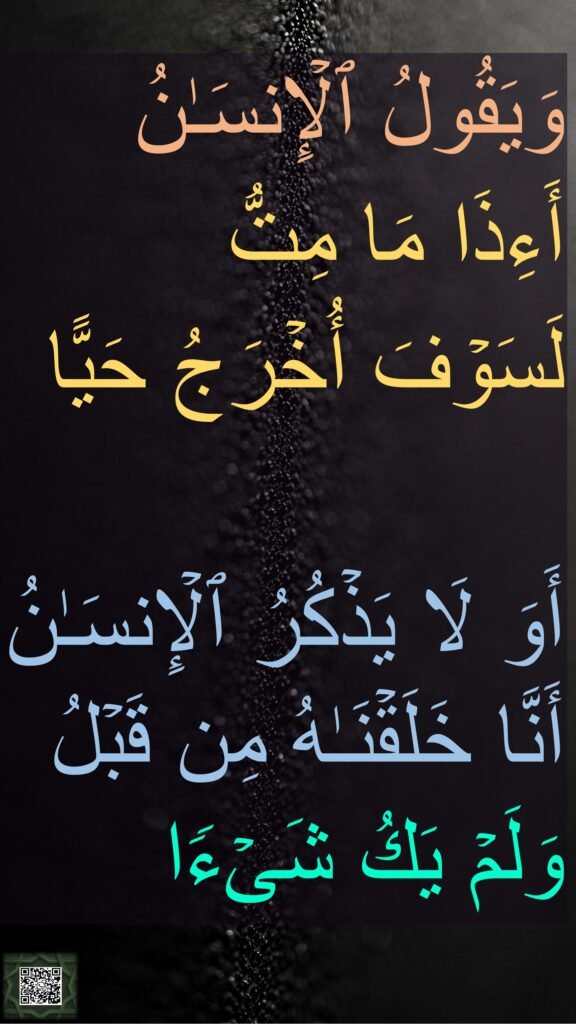 وَيَقُولُ ٱلْإِنسَـٰنُ
أَءِذَا مَا مِتُّ
لَسَوْفَ أُخْرَجُ حَيًّا
أَوَ لَا يَذْكُرُ ٱلْإِنسَـٰنُ
أَنَّا خَلَقْنَـٰهُ مِن قَبْلُ
وَلَمْ يَكُ شَىْءًا